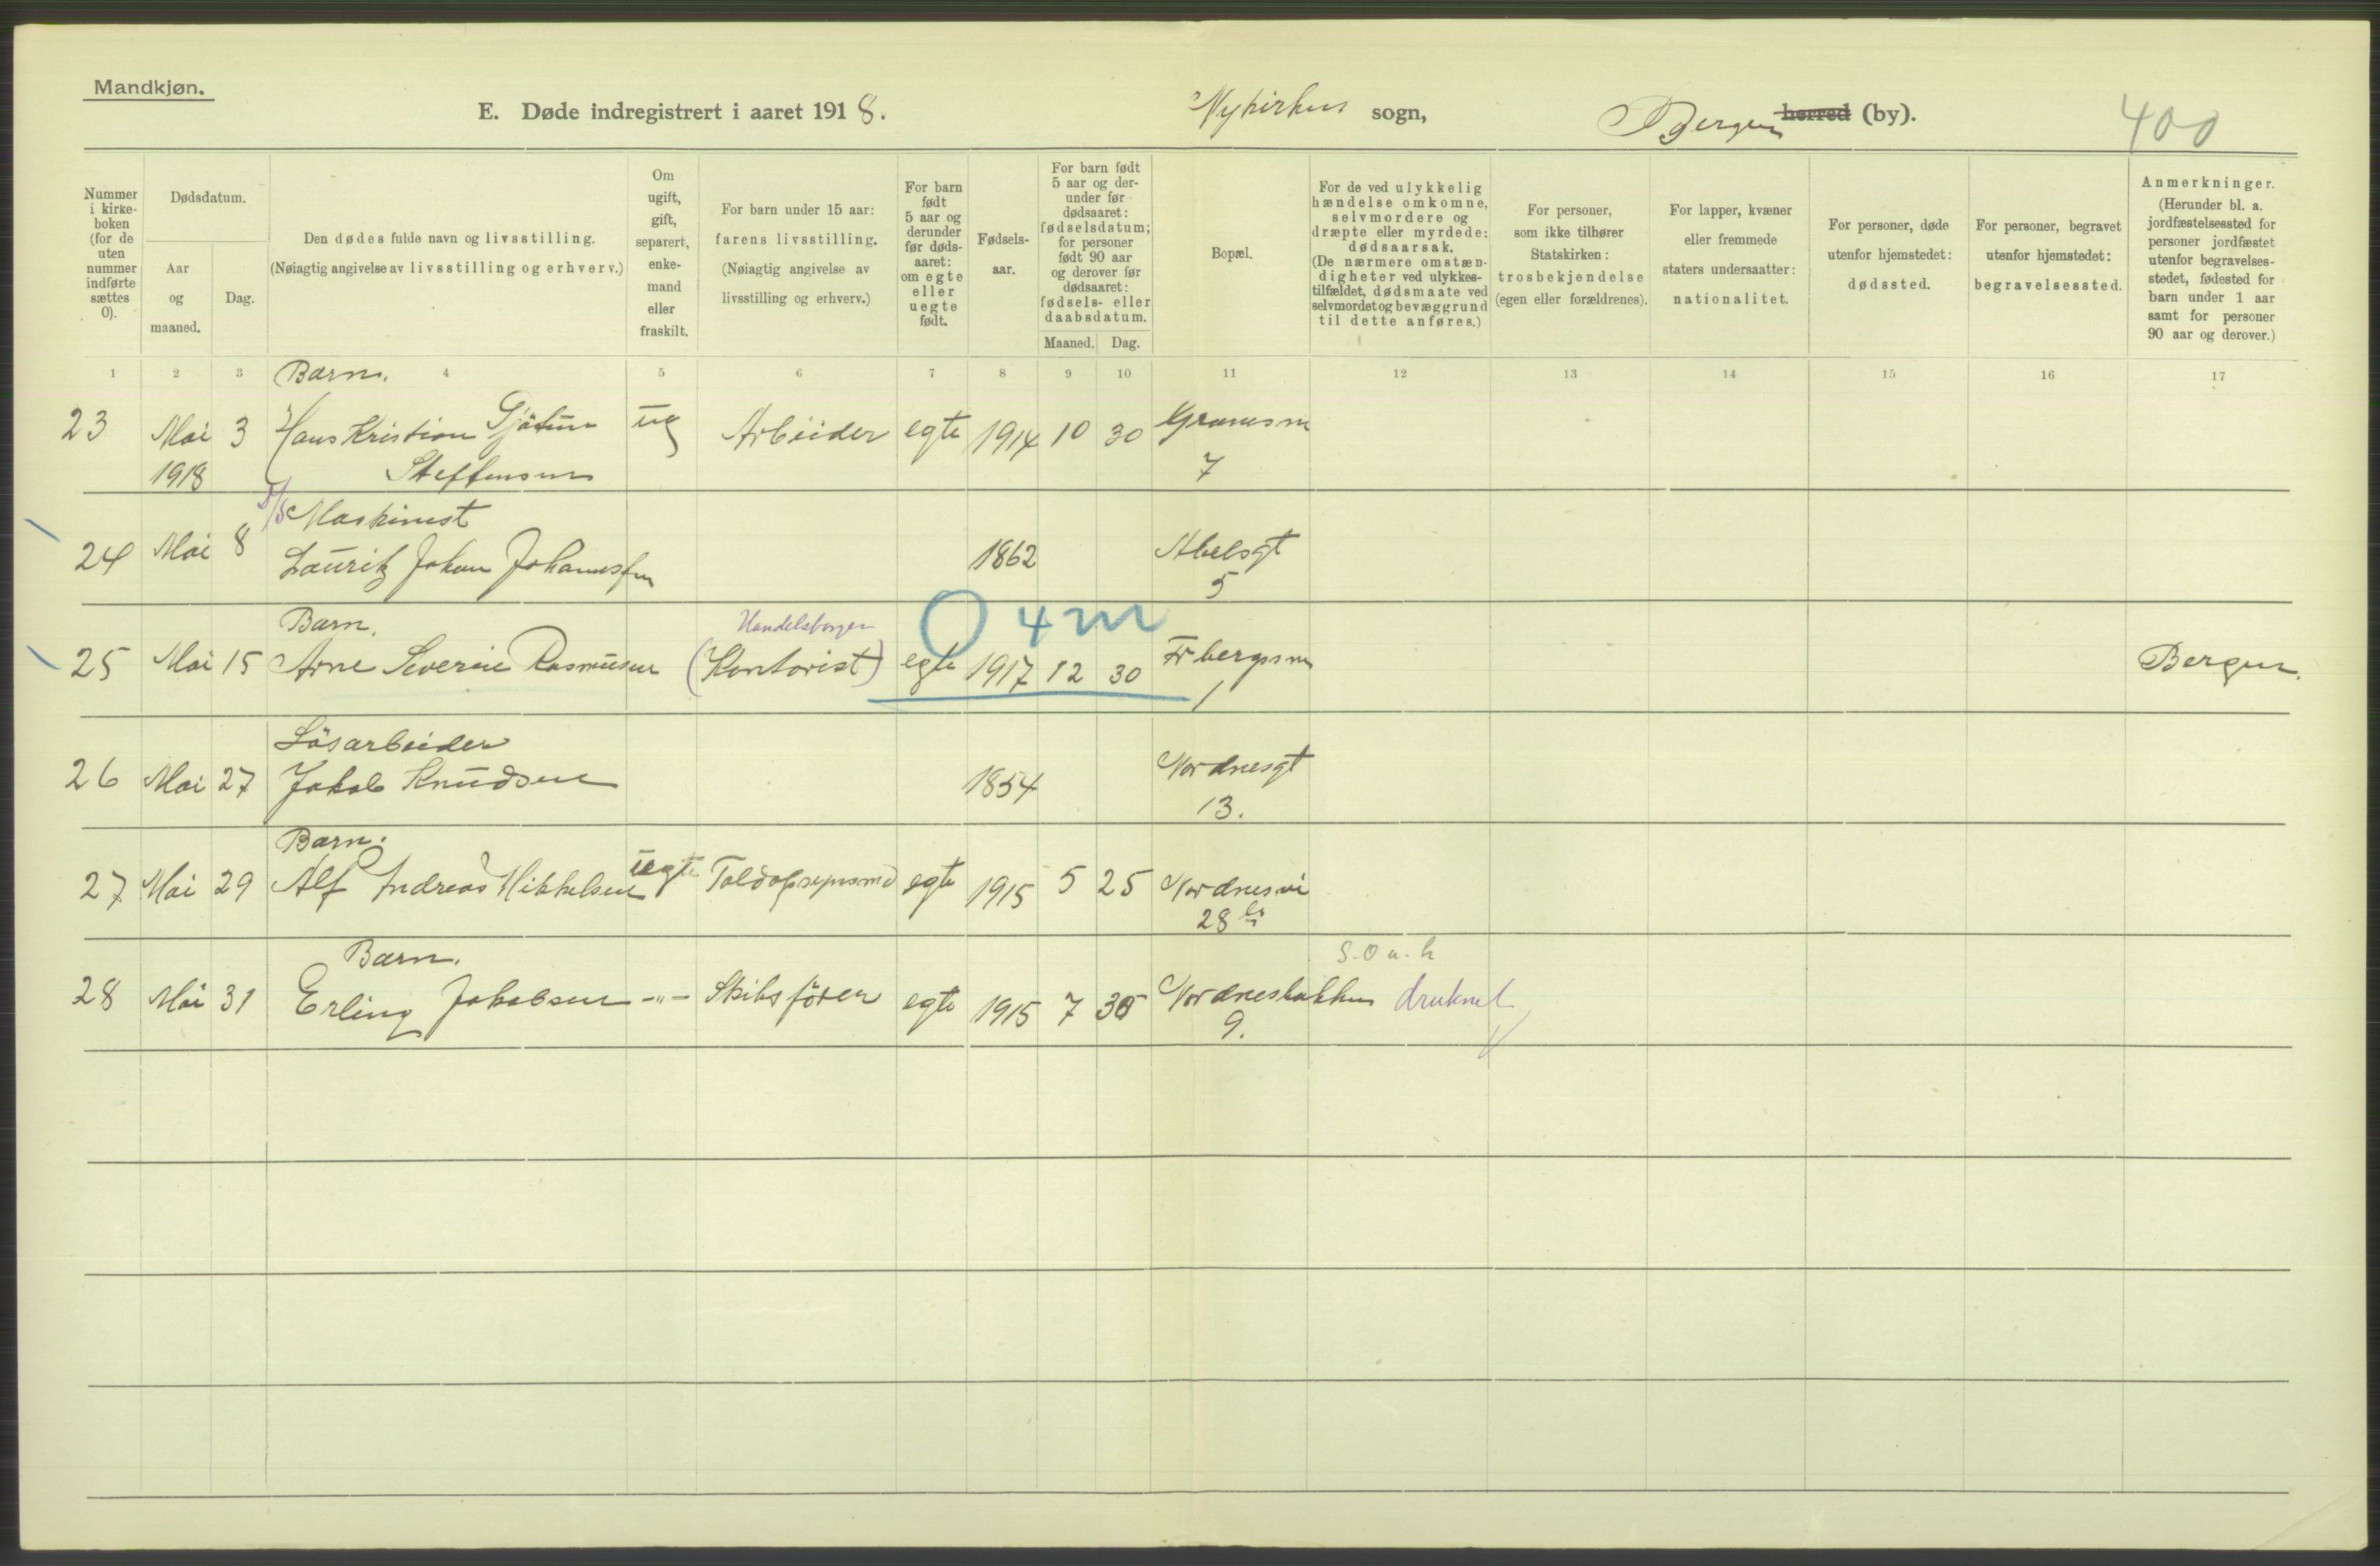 Mandkjøn.
E. Døde indregistrert i aaret 1918. Nykirkens sogn, Bergen herred (by). 400
Nummer i kirke-boken (for de uten nummer indførte sættes 0).
Dødsdatum.
Aar og maaned.
Dag.
Den dødes fulde navn og livsstilling.
(Nøiagtig angivelse av livsstilling og erhverv.)
Om ugift, gift, separert, enke-mand eller fraskilt.
For barn under 15 aar: farens livsstilling.
(Nøiagtig angivelse av livsstilling og erhverv.)
For barn født 5 aar og derunder før døds-aaret: om egte eller uegte født.
Fødsels-aar.
For barn født 5 aar og der-under før dødsaaret: fødselsdatum; for personer født 90 aar og derover før dødsaaret: fødsels- eller daabsdatum.
Maaned. Dag.
Bopæl.
For de ved ulykkelig hændelse omkomne, selvmordere og dræpte eller myrdede: dødsaarsak.
(De nærmere omstæn-digheter ved ulykkes-tilfældet, dødsmaate ved selvmordet og bevæggrund til dette anføres.)
For personer, som ikke tilhører Statskirken: trosbekjendelse (egen eller forældrenes).
For lapper, kvæner eller fremmede staters undersaatter: nationalitet.
For personer, døde utenfor hjemstedet: dødssted.
For personer, begravet utenfor hjemstedet: begravelsessted.
Anmerkninger.
(Herunder bl. a. jordfæstelsessted for personer jordfæstet utenfor begravelses-stedet, fødested for barn under 1 aar samt for personer 90 aar og derover.)
1 2 3 4 5 6 7 8 9 10 11 12 13 14 15 16 17
Barn.
23 Mai 3 Hans Kristian ug Arbeider egte 1914 10 30
1918 Steffensen 7
D/S Maskinist
24 Mai 8 Lauritz Johan Johannesen 1862 Abelsgt
5
Barn. Handelsborger O 4 m
25 Mai 15 Arne Severin Rasmussen (Kontorist) egte 1917 12 30 Bergen.
1
Løsarbeider
26 Mai 27 Jakob Knudsen 1854 Nordnesgt
13.
Barn.
27 Mai 29 Alf Andreas Mikkelsen Toldopsynsmd egte 1915 5 25 Nordnesvei
28
Barn. S.O u. h
28 Mai 31 Erling Jakobsen -"- Skibsfører egte 1915 7 Nordnesbakken druknet
9.